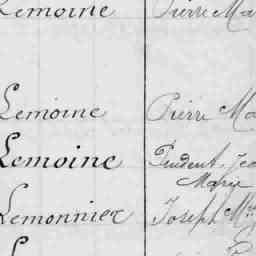 Lemoine Pierre Ma
Lemoine Pierre Ma
Lemoine Prudent Jea
Marie
Lemonnier Joseph Mie